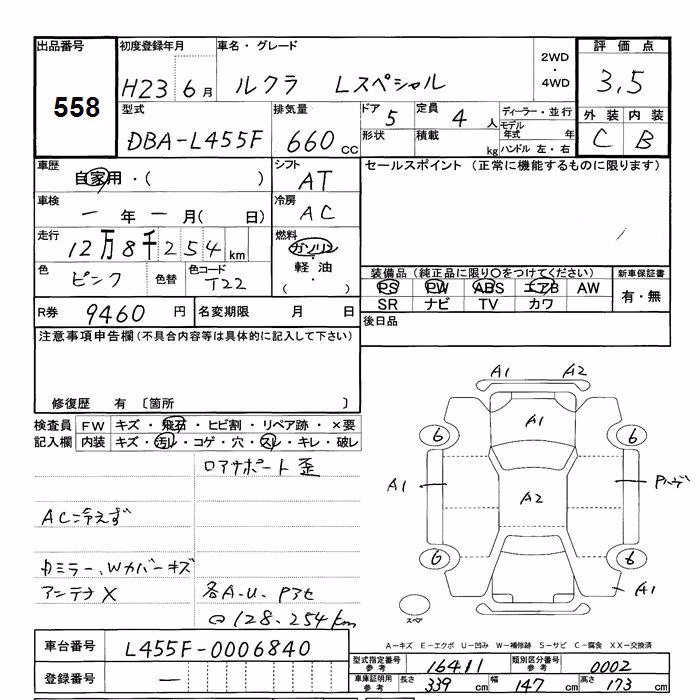 出品番号
558
初度登録年月
H23 6月
車名・グレード
ルクラ Lスペシャル
2WD
・
4WD
評価点
3.5
外装 内装
C B
型式
DBA-L455F
排気量
660cc
ドア 5
形状
定員 4人
積載 kg
ディーラー・並行
モデル年式 年
ハンドル 左・右
車歴
自家用・( )
シフト
AT
セールスポイント (正常に機能するものに限ります)
車検
ー年ー月( 日)
冷房
AC
走行
12万8千254km
燃料
ガソリン
・
軽油
( ・ )
色
ピンク
色替
色コード
T22
装備品(純正品に限り○をつけてください)
PS PW ABS エアB AW
SR ナビ TV カワ
新車保証書
有・無
R券 9460円
名変期限 月 日
後日品
注意事項申告欄(不具合内容等は具体的に記入して下さい)
修復歴 有 〔箇所 〕
検査員記入欄
FW キズ・飛石・ヒビ割・リペア跡・×要
内装 キズ・汚レ・コゲ・穴・スレ・キレ・破レ
ロアサポート歪
AC冷えず
ミラー、Wカバーキズ
アンテナX
各A.U.
128.254km
A1 A2
A1
6 6
A1
A2
6 6
A1
スペア
A-キズ E-エクボ U-凹み W-補修跡 S-サビ C-腐食 XX-交換済
車台番号
L455F-0006840
登録番号
ー
型式指定番号
参考
16411
類別区分番号
参考
0002
車庫証明用
参考
長さ 339cm 幅 147cm 高さ 173cm